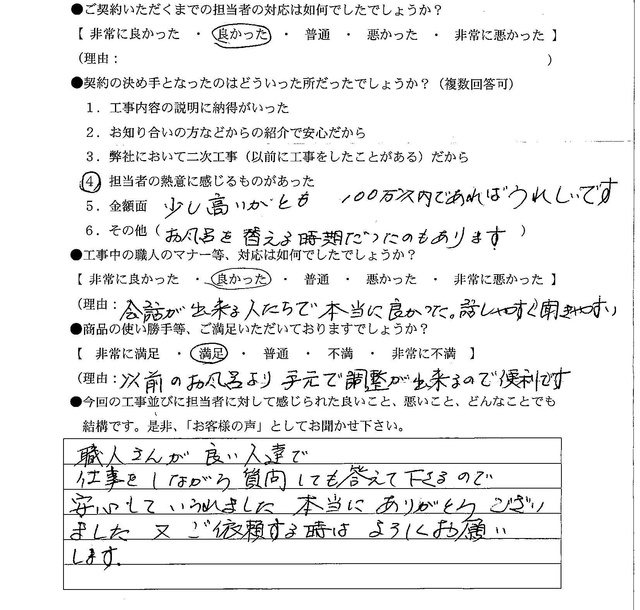 ●ご契約いただくまでの担当者の対応は如何でしたでしょうか？
【 非常に良かった ・ 良かった ・ 普通 ・ 悪かった ・ 非常に悪かった 】
（理由：　）
●契約の決め手となったのはどういった所だったでしょうか？（複数回答可）
1．工事内容の説明に納得がいった
2．お知り合いの方などからの紹介で安心だから
3．弊社において二次工事（以前に工事をしたことがある）だから
④ 担当者の熱意に感じるものがあった
5．金額面 少し高いがとも 100万以内であればうれしいです
6．その他（お風呂を替える時期だったのもあります）
●工事中の職人のマナー等、対応は如何でしたでしょうか？
【 非常に良かった ・ 良かった ・ 普通 ・ 悪かった ・ 非常に悪かった 】
（理由：会話が出来る人たちで本当に良かった。話しやすく聞きやすい
●商品の使い勝手等、ご満足いただいておりますでしょうか？
【 非常に満足 ・ 満足 ・ 普通 ・ 不満 ・ 非常に不満 】
（理由：以前のお風呂より手元で調整が出来るので便利です
●今回の工事並びに担当者に対して感じられた良いこと、悪いこと、どんなことでも
結構です。是非、「お客様の声」としてお聞かせ下さい。
職人さんが良い人達で
仕事をしながら質問しても答えて下さるので
安心していられました 本当にありがとうござい
ました 又 ご依頼する時は よろしくお願い
します.